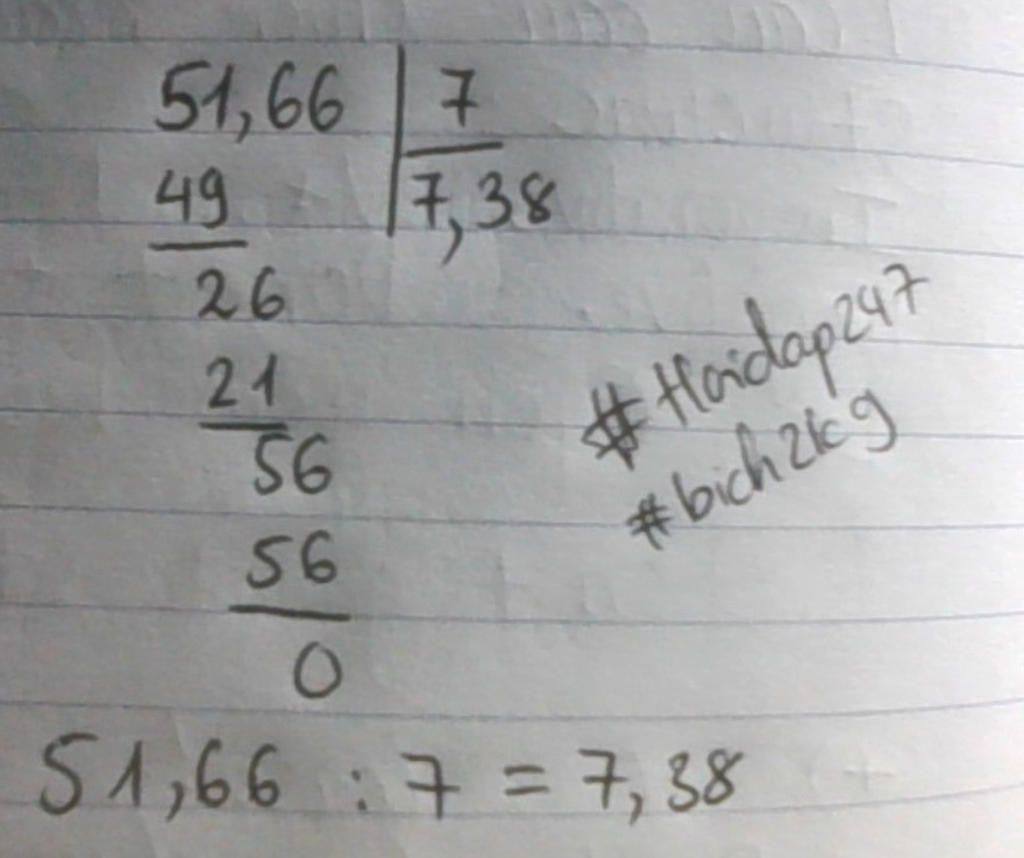 51,66 7
49 7,38
26
21
56
56
0
#Hoidap247
#bich2k9
51,66 : 7 = 7,38